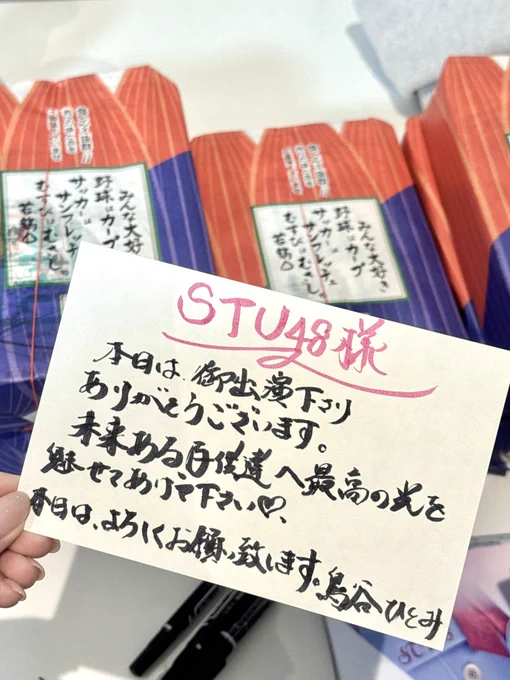 みんな大好
野球はカープ
サッカーは
サンフレッチェ
むすびはむさし。
みんな大好き
野球はカープ
サッカーは
サンフレッチェ
むすびはむさし
STU48様
本日は、御出演下さり
ありがとうございます。
未来ある、子供達へ最高の光を
魅せてあげて下さい♡、
本日は、よろしくお願い致します。鳥谷ひとみ